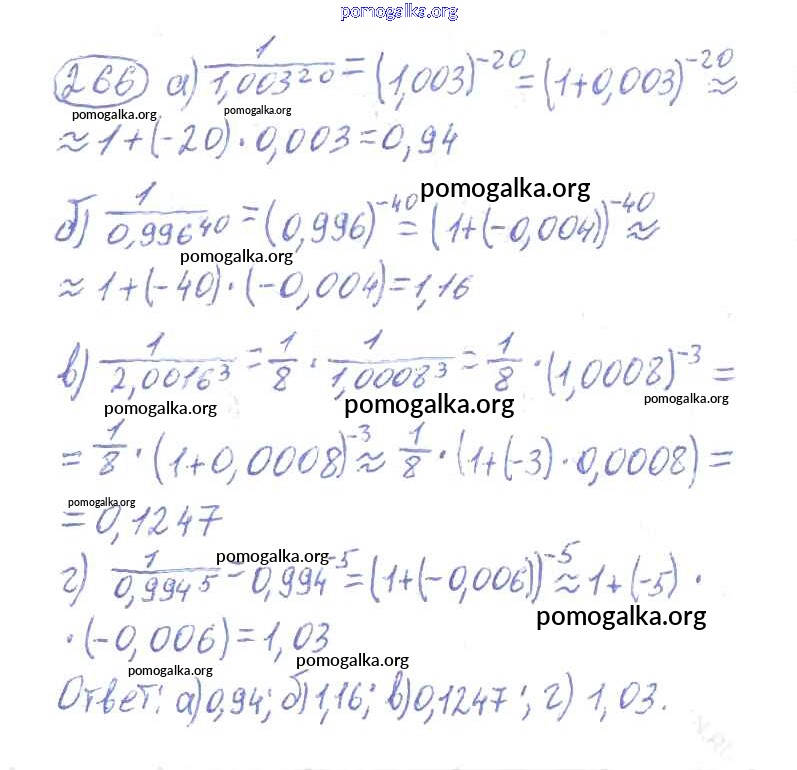 pomogalka.org
266 а) 1/1,003²⁰ = (1,003)⁻²⁰ = (1+0,003)⁻²⁰ ≈
pomogalka.org pomogalka.org
≈ 1+(-20)·0,003=0,94
pomogalka.org
б) 1/0,996⁴⁰ = (0,996)⁻⁴⁰ = (1+(-0,004))⁻⁴⁰ ≈
pomogalka.org
≈ 1+(-40)·(-0,004)=1,16
в) 1/2,0016³ = 1/8 · 1/1,0008³ = 1/8 · (1,0008)⁻³ =
pomogalka.org pomogalka.org pomogalka.org
= 1/8 · (1+0,0008)⁻³ ≈ 1/8 · (1+(-3)·0,0008) =
pomogalka.org
= 0,1247
pomogalka.org
г) 1/0,994⁵ = 0,994⁻⁵ = (1+(-0,006))⁻⁵ ≈ 1+(-5) ·
pomogalka.org
· (-0,006) = 1,03
pomogalka.org pomogalka.org
Ответ: а) 0,94; б) 1,16; в) 0,1247; г) 1,03.